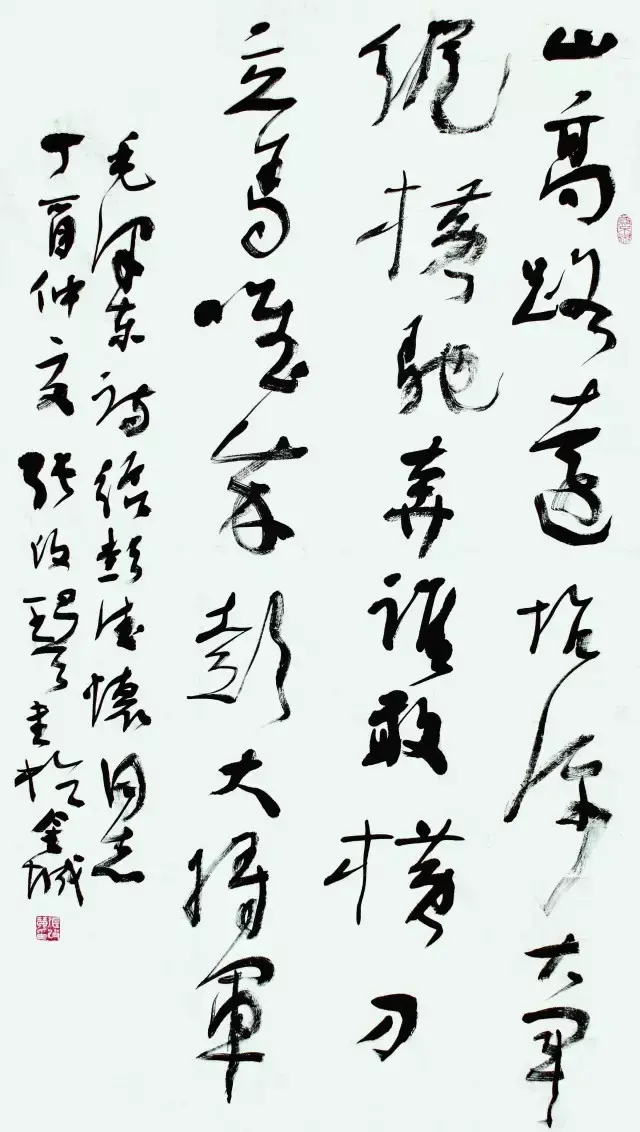 山高路遠坑深大軍
縱橫馳奔誰敢橫刀
立馬唯我彭大將軍
毛澤東詩給彭德懷同志
丁酉仲夏張改琴書於金城